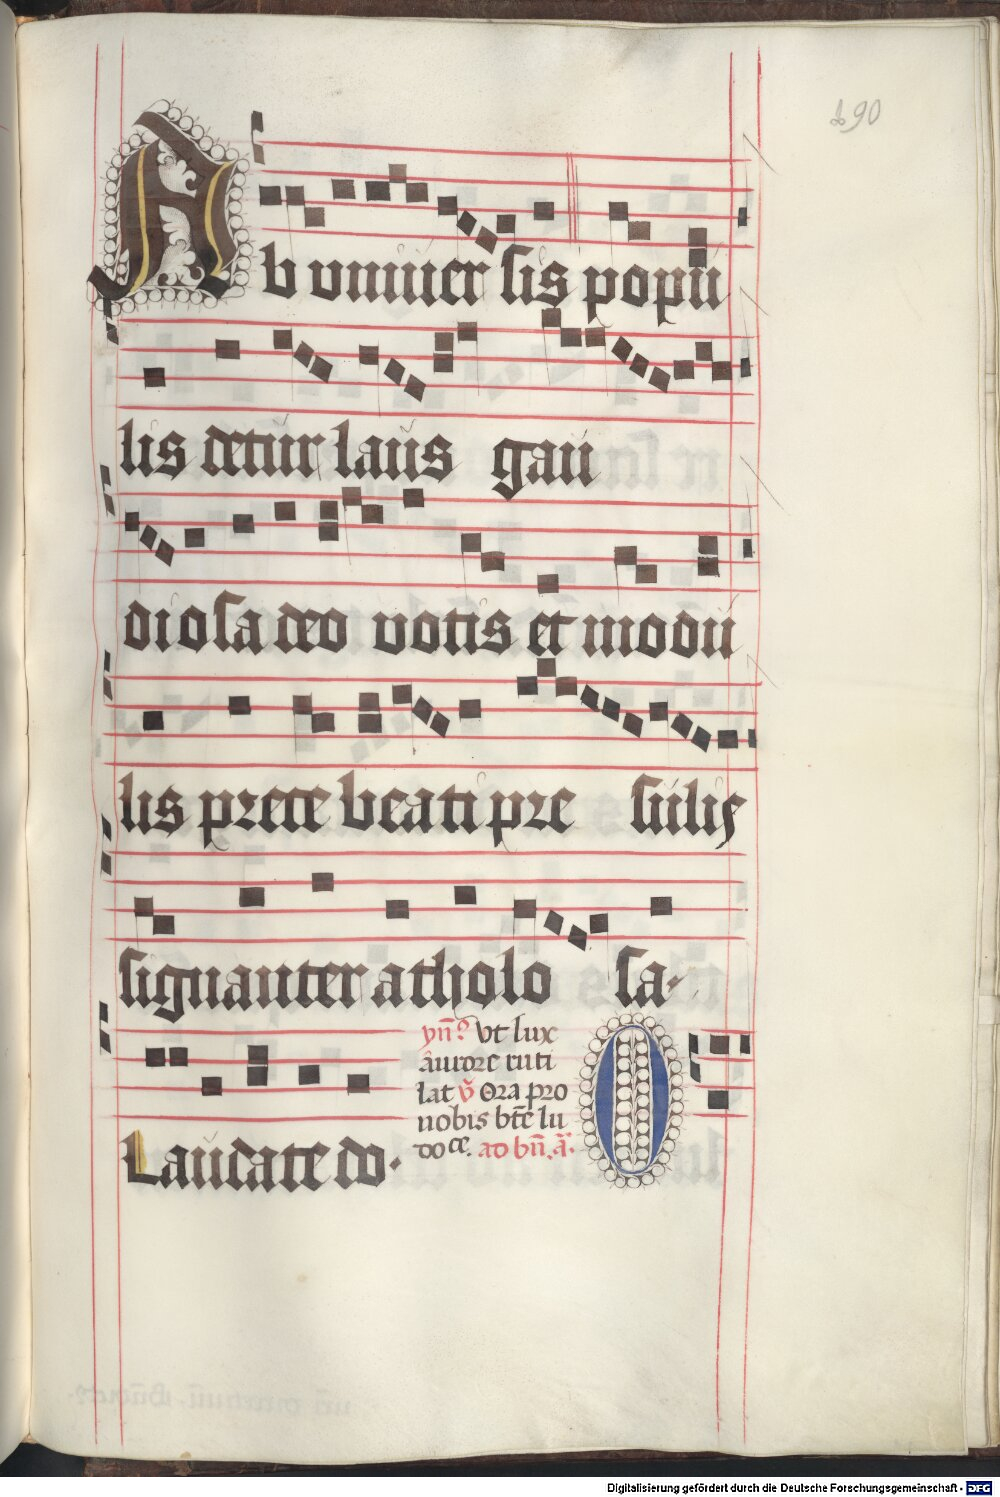 190
Ab vniuer sis popu
lis detur laus gau
diosa deo votis et modu
lis prece beati pre sulis
signanter a tholo sa.
yn̄ꝰ. vt lux
aurore ruti
lat v̄ Ora pro
nobis bt̄e lu
doce. ad bn̄. ā.
Laudate do. O
Digitalisierung gefördert durch die Deutsche Forschungsgemeinschaft - DFG